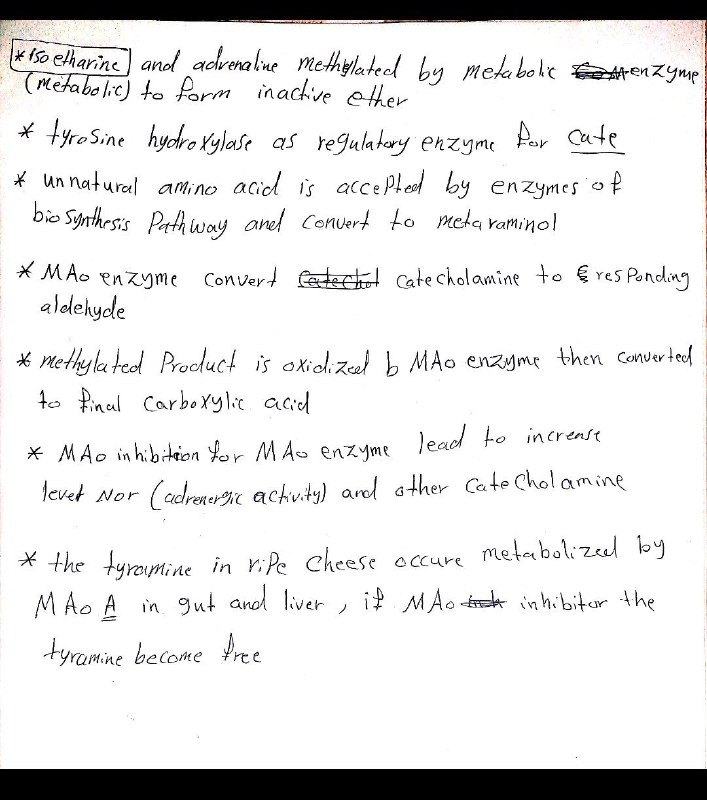 * isoetharine and adrenaline methylated by metabolic enzyme
(metabolic) to form inactive ether
* tyrosine hydroxylase as regulatory enzyme for cate
* unnatural amino acid is accepted by enzymes of
biosynthesis Pathway and convert to metaraminol
* MAo enzyme convert catecholamine to responding
aldehyde
* methylated Product is oxidized b MAo enzyme then converted
to final carboxylic acid
* MAo inhibition for MAo enzyme lead to increase
level Nor (adrenergic activity) and other catecholamine
* the tyramine in ripe cheese occure metabolized by
MAo A in gut and liver, if MAo inhibitor the
tyramine become free